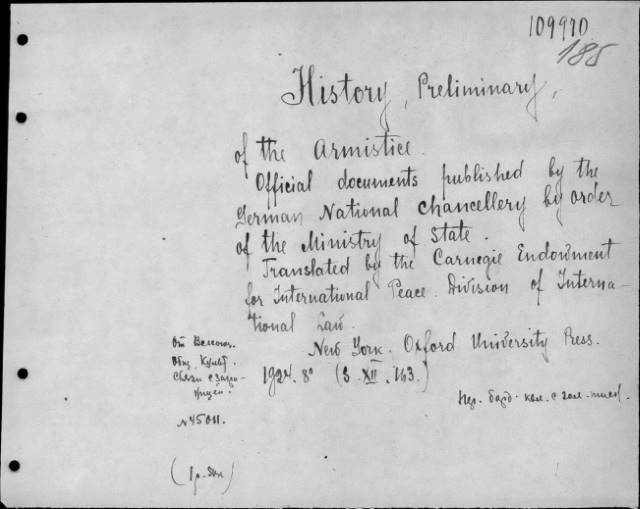 109970
185
History, Preliminary,
of the Armistice.
Official documents published by the
German National Chancellery by order
of the Ministry of State.
Translated by the Carnegie Endowment
for International Peace. Division of Interna-
tional Law.
New York. Oxford University Press.
1924. 8° (3. XII, 143.)
От Всесоюз.
Общ. Культ.
Связи с загра-
ницей.
№45011.
Пер.